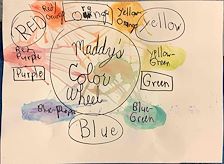 Red
Orange
Orange
Yellow
Orange
Yellow
RED
Red
Purple
Maddy's
Color
Wheel
Yellow-
Green
Purple
Green
Blue-Purple
Blue-
Green
Blue